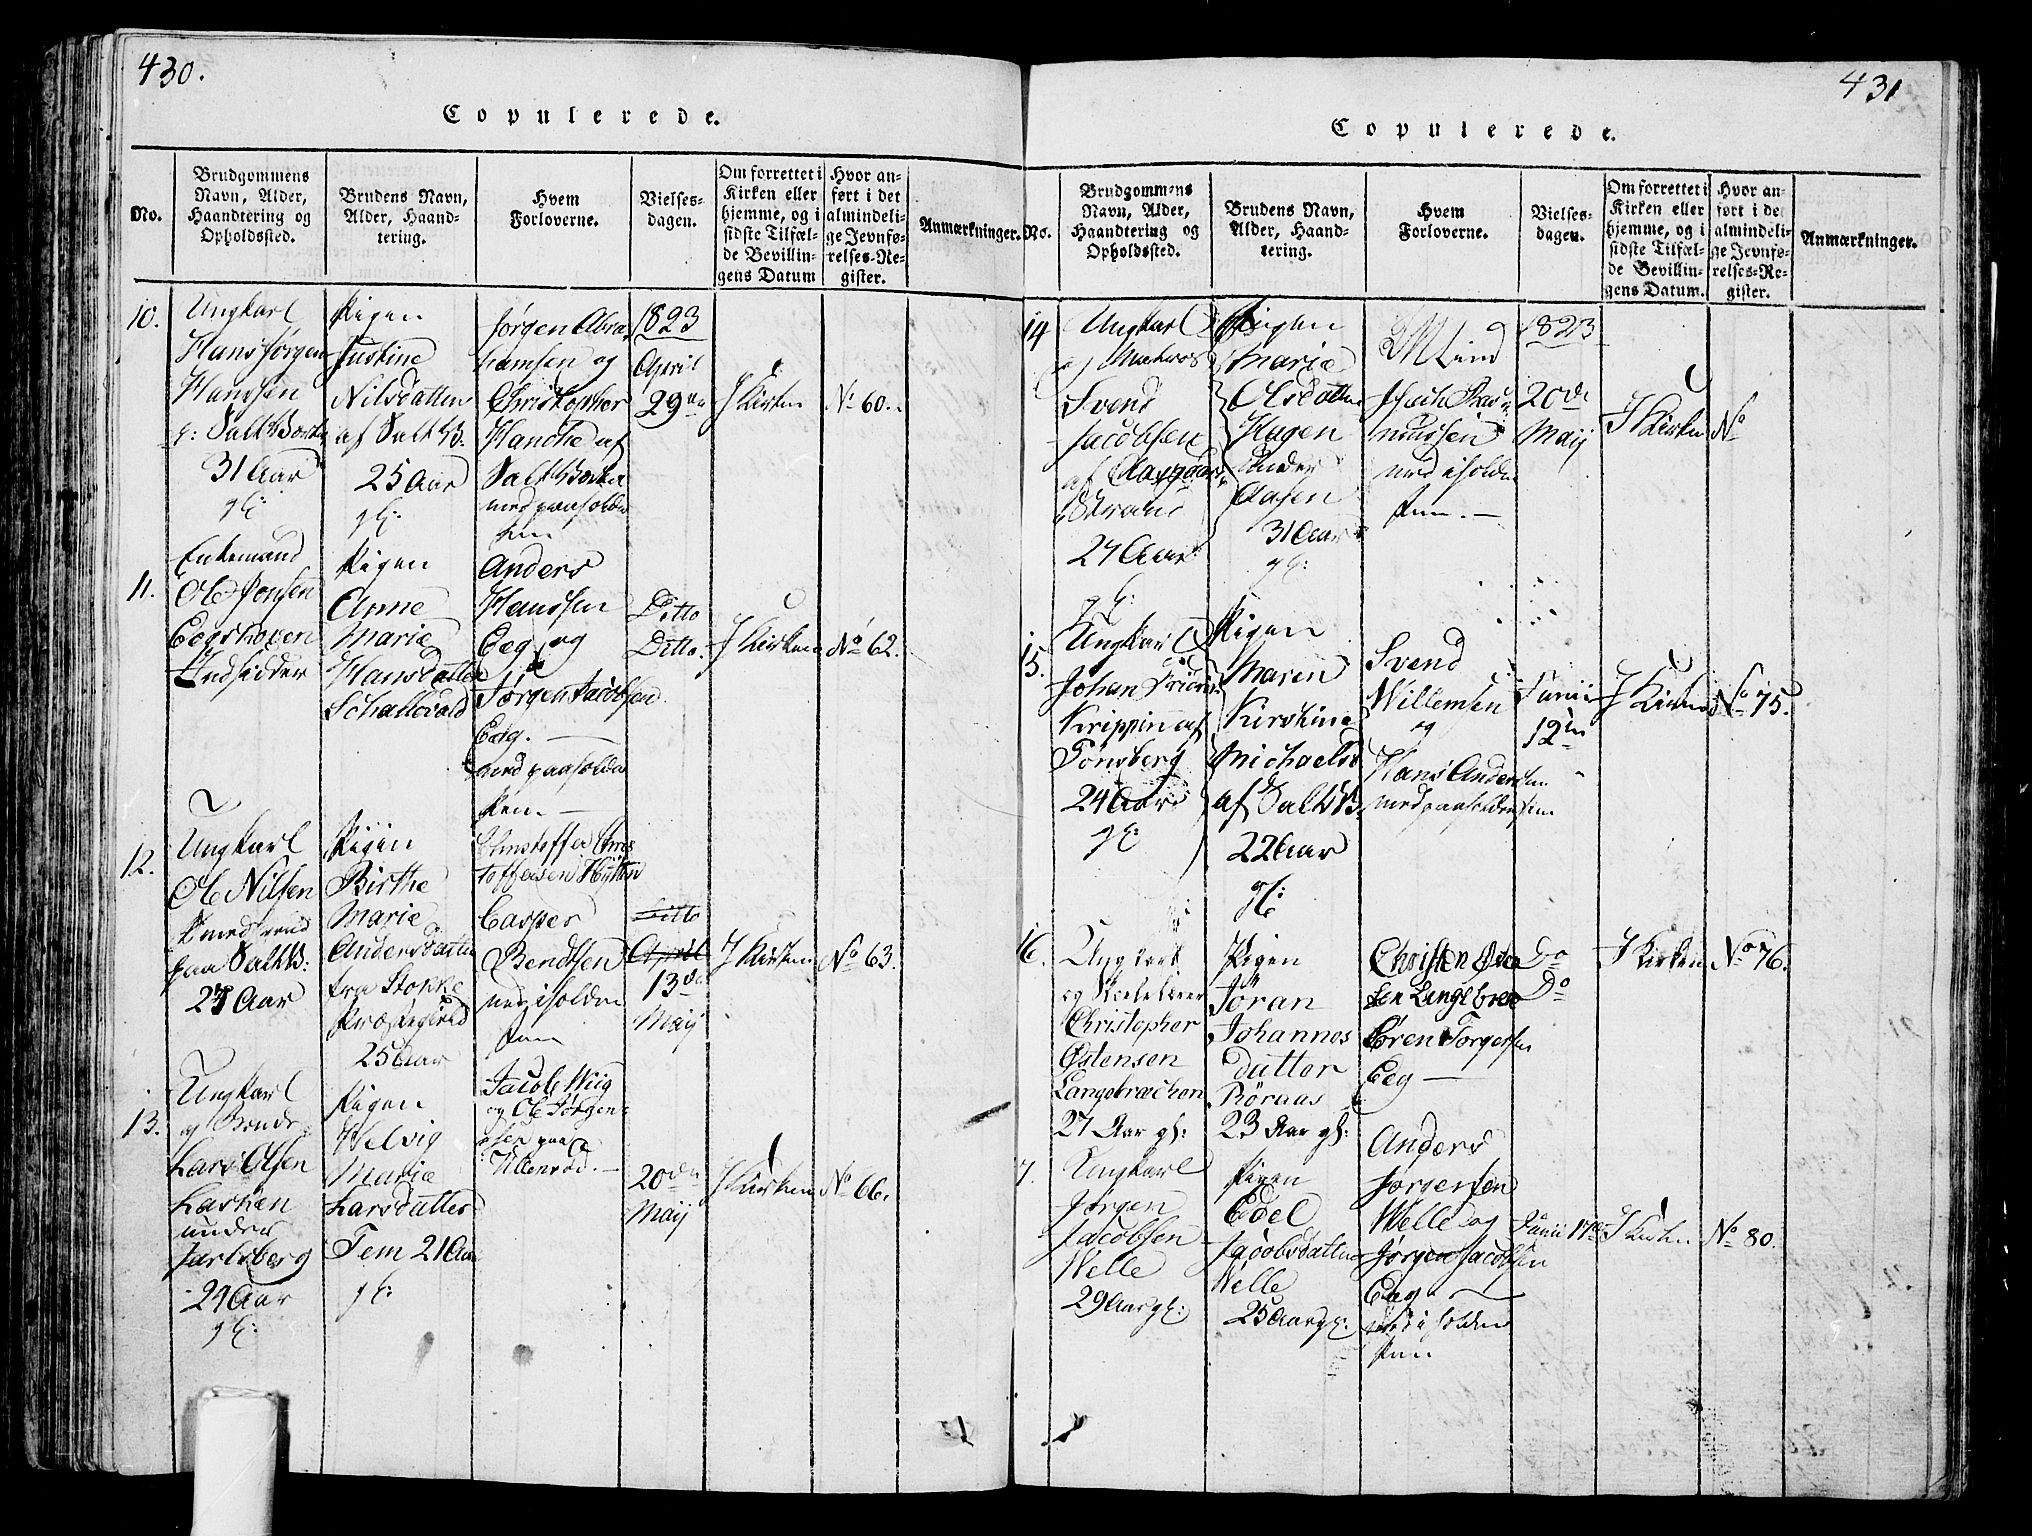 430.
Copulerede.
No.
Brudgommens
Navn, Alder,
Haandtering og
Opholdssted.
Brudens Navn,
Alder, Haand-
tering.
Hvem
Forloverne.
Vielses-
dagen.
Om forrettet i
Kirken eller
hjemme, og i
sidste Tilfæl-
de Bevillin-
gens Datum
Hvor an-
ført i det
almindeli-
ge Jevnfø-
relses-Re-
gister.
Anmærkninger.
10.
Ungkarl
Hans Jørgen
Hanssen
31 Aar
gl:
Pigen
Justine
Nilsdatter
af Salt B.
25 Aar
gl:
Jørgen Abra
hamsen og
Christopher
af
med paaholden
Pen
1823
April
29de
I Kirken
No 60.
11.
Enkemand
Ole Jensen
Indsidder
Pigen
Anne
Marie
Hansdatter
Anders
Hanssen
Eeg og
Jørgen Jacobsen
Eeg.
med paaholden
Pen.
Ditto
Ditto.
I Kirken
No 62.
12.
Ungkarl
Ole Nilsen
paa Salt B:
Aar
Pigen
Birthe
Marie
Andersdatter
fra Stokke
Præstegield
25 Aar
Casper
Bendtsen
med iholden
Pen
Ditto
April
13de
Maij
I Kirken
No 63.
13.
Ungkarl
og Bonde
Lars Olsen
under
Jarlsberg
29 Aar
gl:
Pigen
Helvig
Marie
Larsdatter
Tem 21 Aar
gl:
Jacob Wiig
og Ole Jørgen-
sen paa
Ullenrød.
20de
Maij
I Kirken
No 66.
431
Copulerede.
No.
Brudgommens
Navn, Alder,
Haandtering og
Opholdssted.
Brudens Navn,
Alder, Haand-
tering.
Hvem
Forloverne.
Vielses-
dagen.
Om forrettet i
Kirken eller
hjemme, og i
sidste Tilfæl-
de Bevillin-
gens Datum.
Hvor an-
ført i det
almindeli-
ge Jevnfø-
relses-Re-
gister.
Anmærkninger.
14
Ungkarl
og Matros
Svend
Jacobsen
af Aasgaard
Strand
Aar
gl:
Pigen
Marie
Olsdatter
Hagen
under
Aasen
31 Aar
gl:
med iholden
Pen.
1823
20de
Maij
I Kirken
No
15.
Ungkarl
Johan
Krippin af
Tønsberg
24 Aar
gl:
Pigen
Maren
Kirstine
Michaelsd
af Salt B.
22 Aar
gl:
Svend
Willemsen
og
Hans Andersen
med paaholden Pen
Junii
12te
I Kirken
No 75.
16.
Ungkarl
og
Christopher
Østensen
Langebræchen
27 Aar gl:
Pigen
Jöran
Johannes
datter
Röraas
23 Aar gl:
Christen
sen Langebræc
Sören Torgersen
Eeg
Do
Do
I Kirken
No 76.
7.
Ungkarl
Jørgen
Jacobsen
Welle
29 Aar gl:
Pigen
Edel
Jacobsdatter
Welle
25 Aar gl:
Anders
Jørgensen
Welle og
Jørgen Jacobsen
Eeg
med iholden
Pen
Junii 17de
I Kirken
No 80.